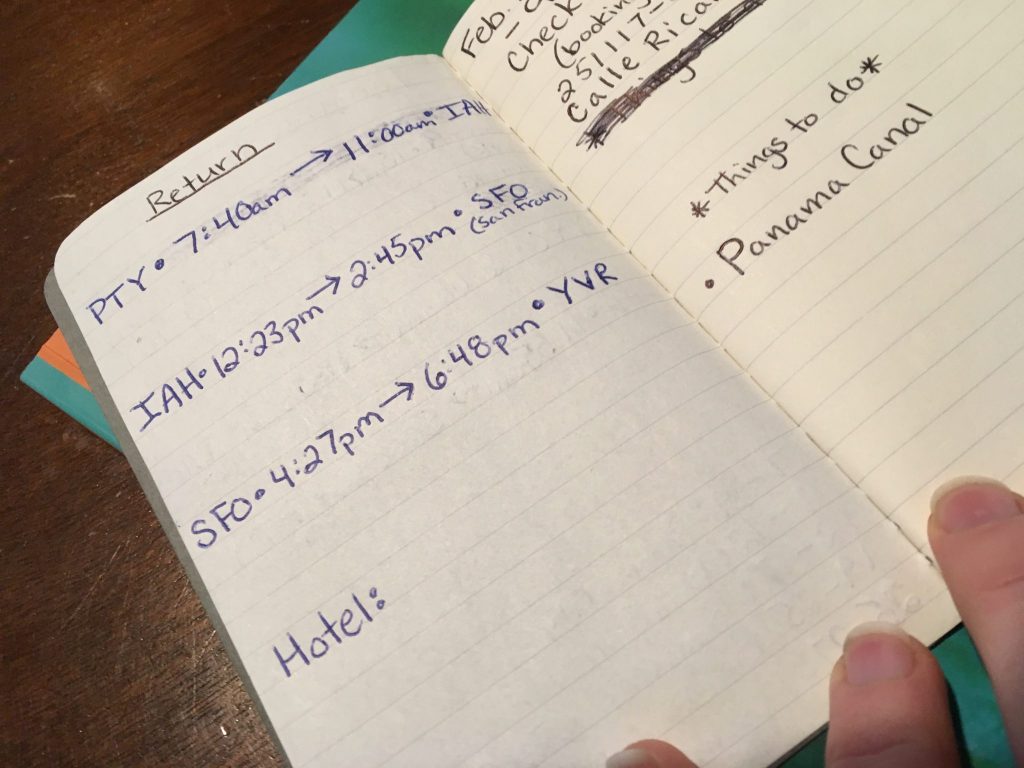 Return
PTY • 7:40am → 11:00am • IAH
IAH • 12:23pm → 2:45pm • SFO
(San Fran)
SFO • 4:27pm → 6:48pm • YVR
Hotel:
Feb.
Check
(booking
25117-
Calle Rica
*Things to do*
• Panama Canal